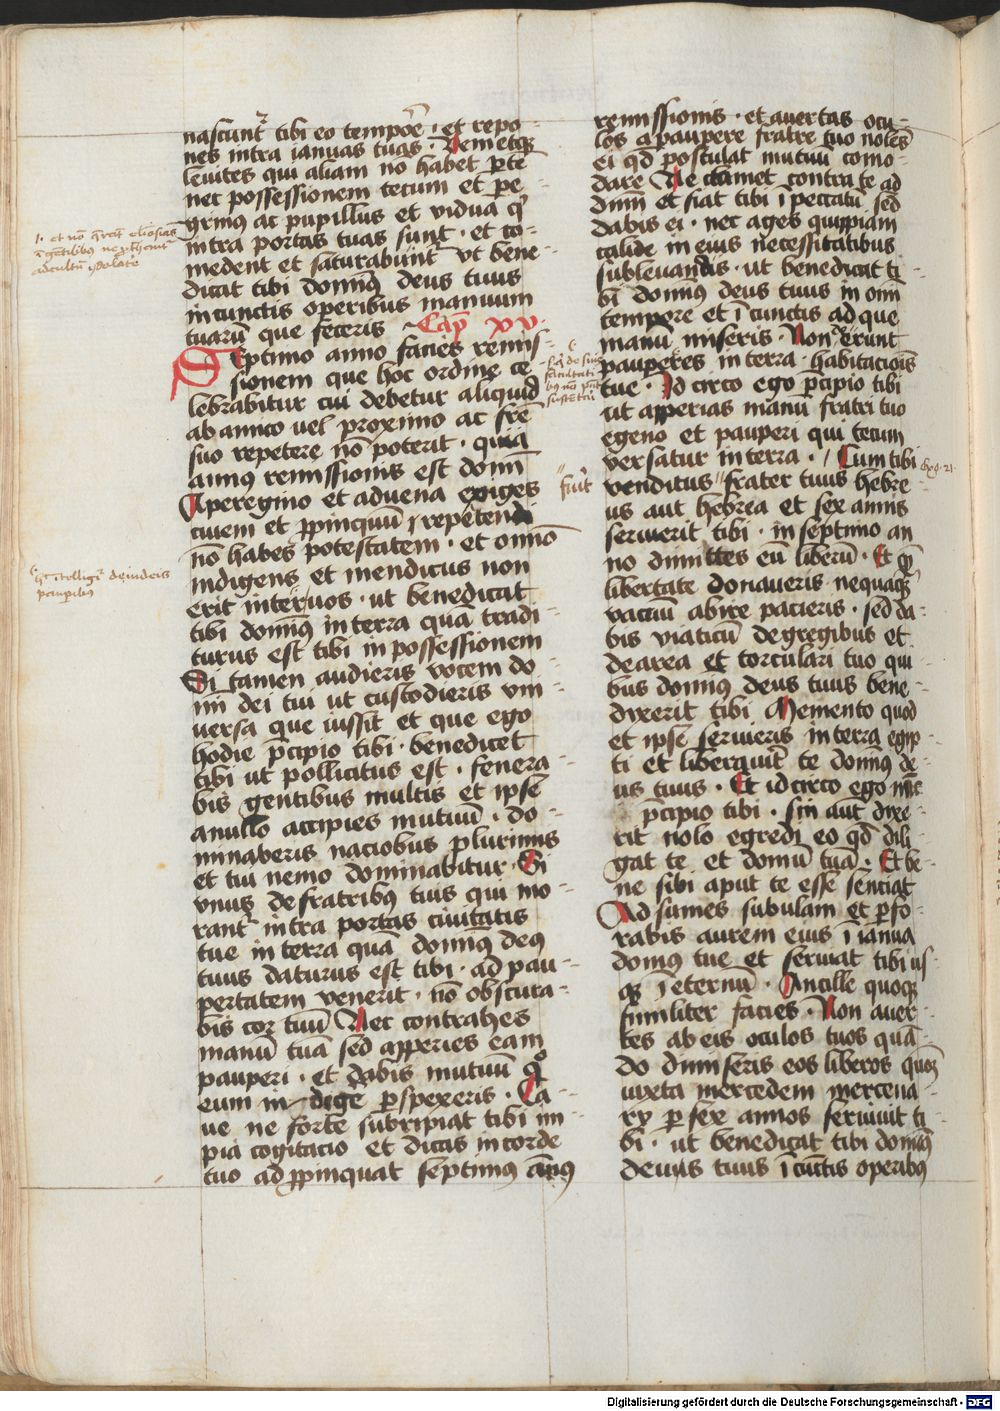 nascunt᷑ tibi eo tempoꝛe · et repo-
nes intra ianuas tuas · Uenietqꝫ
leuites qui aliam nō habet ꝑte
nec possessionem tecum et ꝑe-
grinus ac pupillus et vidua q̄
intra portas tuas sunt · et co-
medent et saturabunt᷑ vt bene-
dicat tibi dominꝰ deus tuus
in cunctis operibus manuum
tuarū que feceris Cap̄ xv·
Septimo anno facies remis-
sionem que hoc ordine ce
lebrabitur cui debetur aliquid
ab amico uel proximo ac fr̄e
suo repetere nō poterit · quia
annus remissionis est domī
A peregrino et aduena exiges
ciuem et ꝓpinquū repetendi
nō habes potestatem · et om̄īo
indigens et mendicus non
erit inter uos · ut benedicat
tibi dominꝰ in terra quā tradi-
turus est tibi in possessionem
Si tamen audieris vocem do-
mī dei tui ut custodieris vni
uersa que iussit et que ego
hodie p̄cipio tibi · benedicet
tibi ut pollicitus est · fenera-
bis gentibus multis et ipse
a nullo accipies mutuū · do-
minaberis nacionibꝰ plurimis
et tui nemo dominabitur · Si
vnus de fratribus tuis qui mo-
rant᷑ intra portas ciuitatis
tue in terra quā dominꝰ deꝰ
tuus daturus est tibi · ad pau-
pertatem venerit · nō obscura-
bis cor tuū Nec contrahes
manū tuā sed apperies eam
pauperi · et dabis mutuū qͦ
eum indige perspexeris · Ca-
ue ne forte subripiat tibi im
pia cogitacio et dicas in corde
tuo ad ꝓpinquat septimus ānus
remissionis · et auertas ocu-
los a paupere fratre tuo nolēs
ei qd̄ postulat mutuū como-
dare Ne clamet contra te ad
dnm̄ et fiat tibi ī peccatū sed
dabis ei · nec ages quippiam
calide in eius necessitatibus
subleuandis · ut benedicat ti
bi dominꝰ deus tuus in om̄i
tempore et ī cunctis ad que
manū miseris · Non erunt
pauperes in terra · habitacionis
tue · Id circo ego p̄cipio tibi
ut apperias manū fratri tuo
egeno et pauperi qui tecum
versatur in terra · Cum tibi
venditus frater tuus hebre
us aut hebrea et sex annis
seruierit tibi · in septimo an
no dimittes eū liberū · Et qͣ
libertate donaueris nequaqͣ
vacuū abire pacieris · sed da-
bis viaticū de gregibus et
de area et torculari tuo qui
bus dominꝰ deus tuus bene
dixerit tibi Memento quod
et ipse seruieris in terra egip
ti et liberauit te dominꝰ de-
us tuus · Et idcirco ego nūc
p̄cipio tibi · sin aut̄ dixe-
rit nolo egredi eo qd̄ dili-
gat te et domū tuā · Et be-
ne sibi aput te esse sēnciat
Adsumes subulam et ꝑfo-
rabis aurem eius ī ianua
domꝰ tue et seruiat tibi us
qꝫ ī eternū · Ancille quoqꝫ
similiter facies · Non auer-
tes ab eis oculos tuos quā-
do dimiseris eos liberos quō
iuxta mercedem mercena-
ry per sex annos seruiuit ti-
bi · ut benedicat tibi dominꝰ
deuus tuus ī cūctis operibꝰ
fuīt
Exo · 21 ·
pauperibus